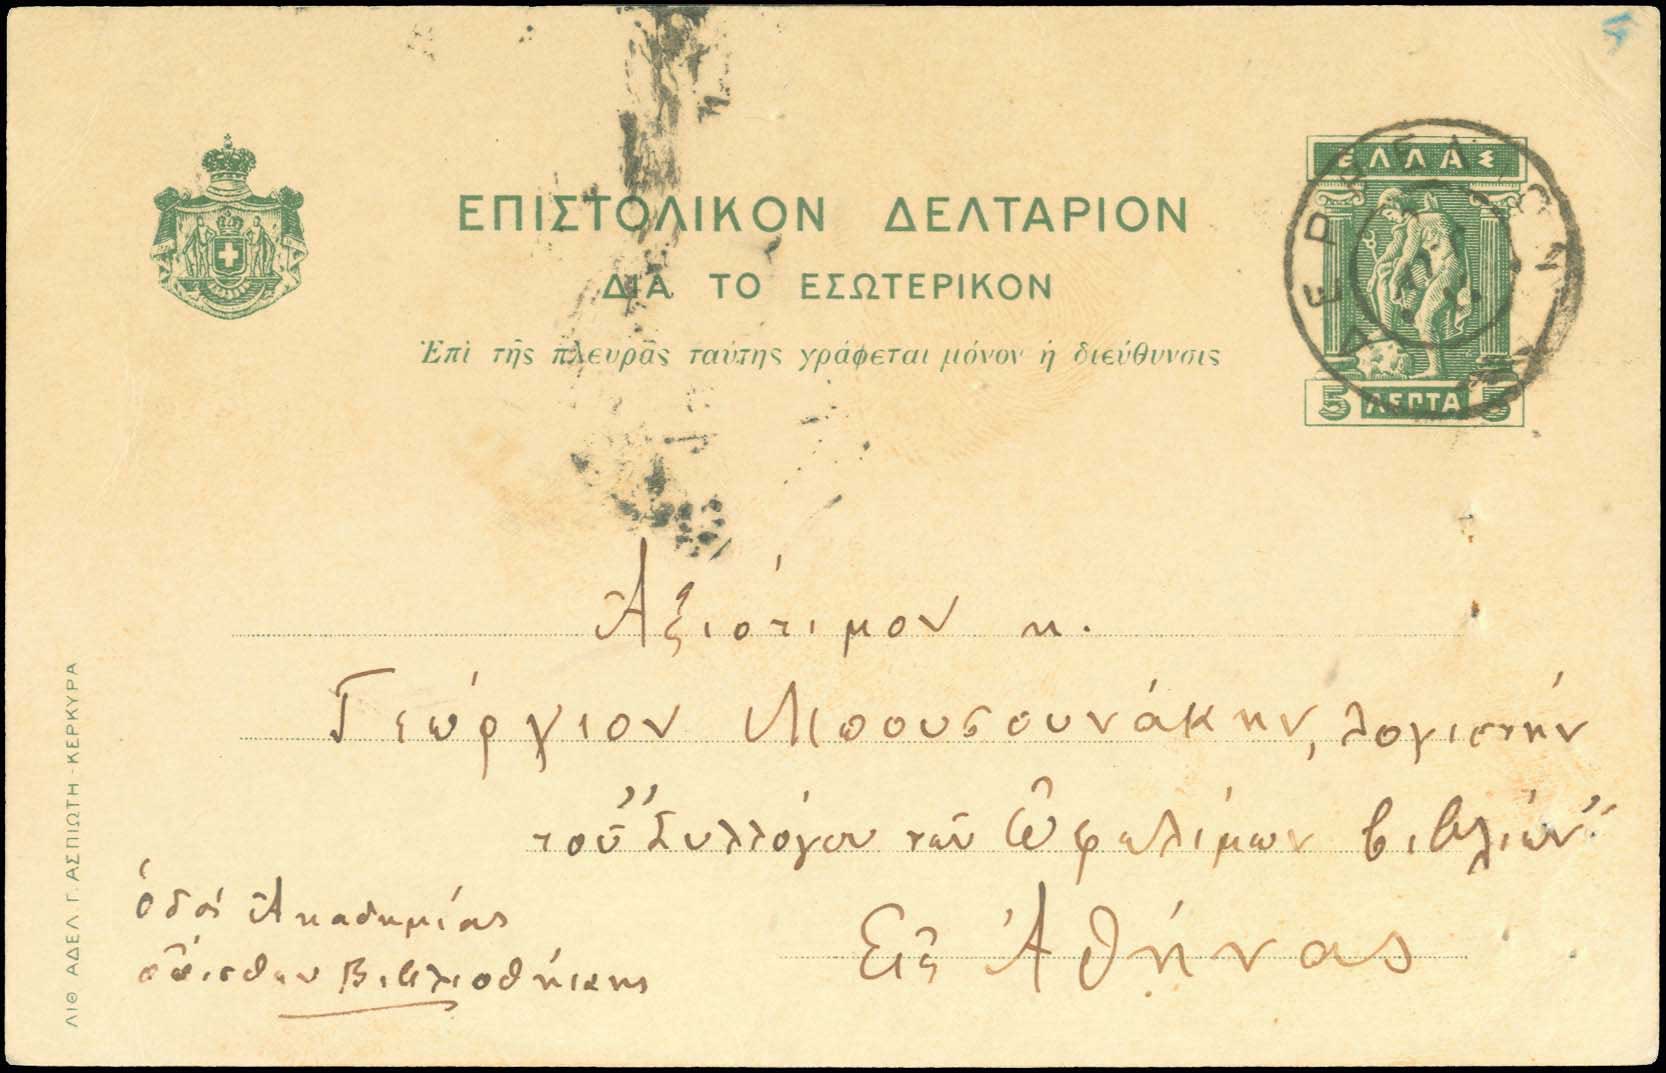 ΕΠΙΣΤΟΛΙΚΟΝ ΔΕΛΤΑΡΙΟΝ
ΔΙΑ ΤΟ ΕΣΩΤΕΡΙΚΟΝ
Ἐπὶ τῆς πλευρᾶς ταύτης γράφεται μόνον ἡ διεύθυνσις
ΕΛΛΑΣ
5 ΛΕΠΤΑ 5
Ἀξιότιμον κ.
Γεώργιον Μπουσουνάκην, λογιστὴν
τοῦ "Συλλόγου τῶν Ὠφελίμων Βιβλίων"
Εἰς Ἀθήνας
ὁδὸς Ἀκαδημίας
ὄπισθεν Βιβλιοθήκης
ΛΙΘ ΑΔΕΛ Γ. ΑΣΠΙΩΤΗ - ΚΕΡΚΥΡΑ